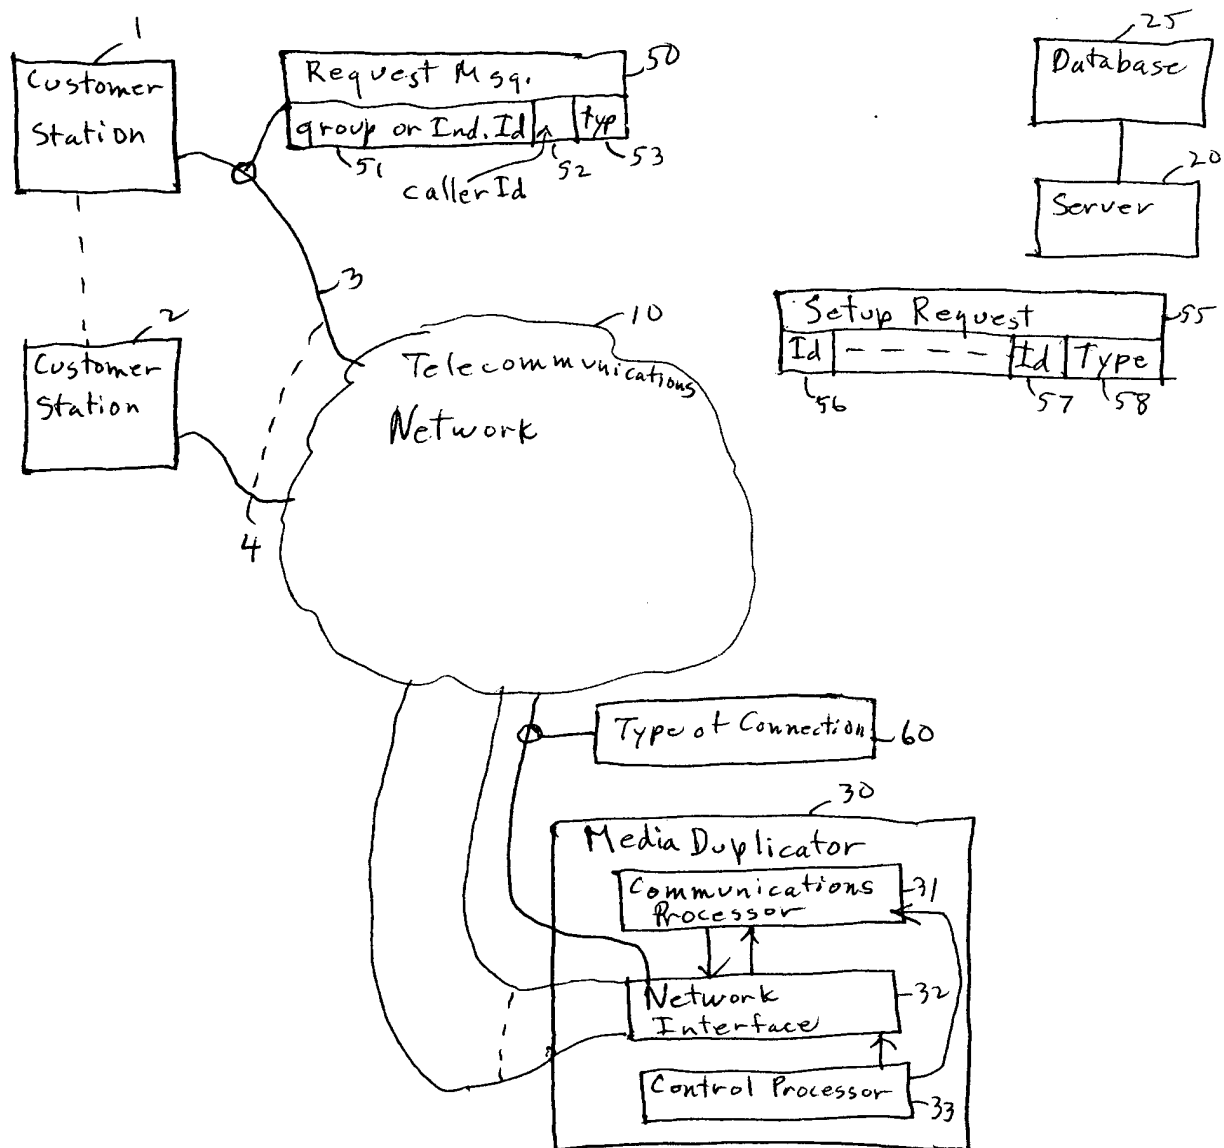 1
Customer
Station
Request Msg.
50
group or Ind. Id
typ
51
52
53
callerId
25
Database
20
Server
3
2
Customer
Station
4
10
Telecommunications
Network
Setup Request
55
Id
Id
Type
56
57
58
Type of Connection
60
30
Media Duplicator
Communications
Processor
31
Network
Interface
32
Control Processor
33